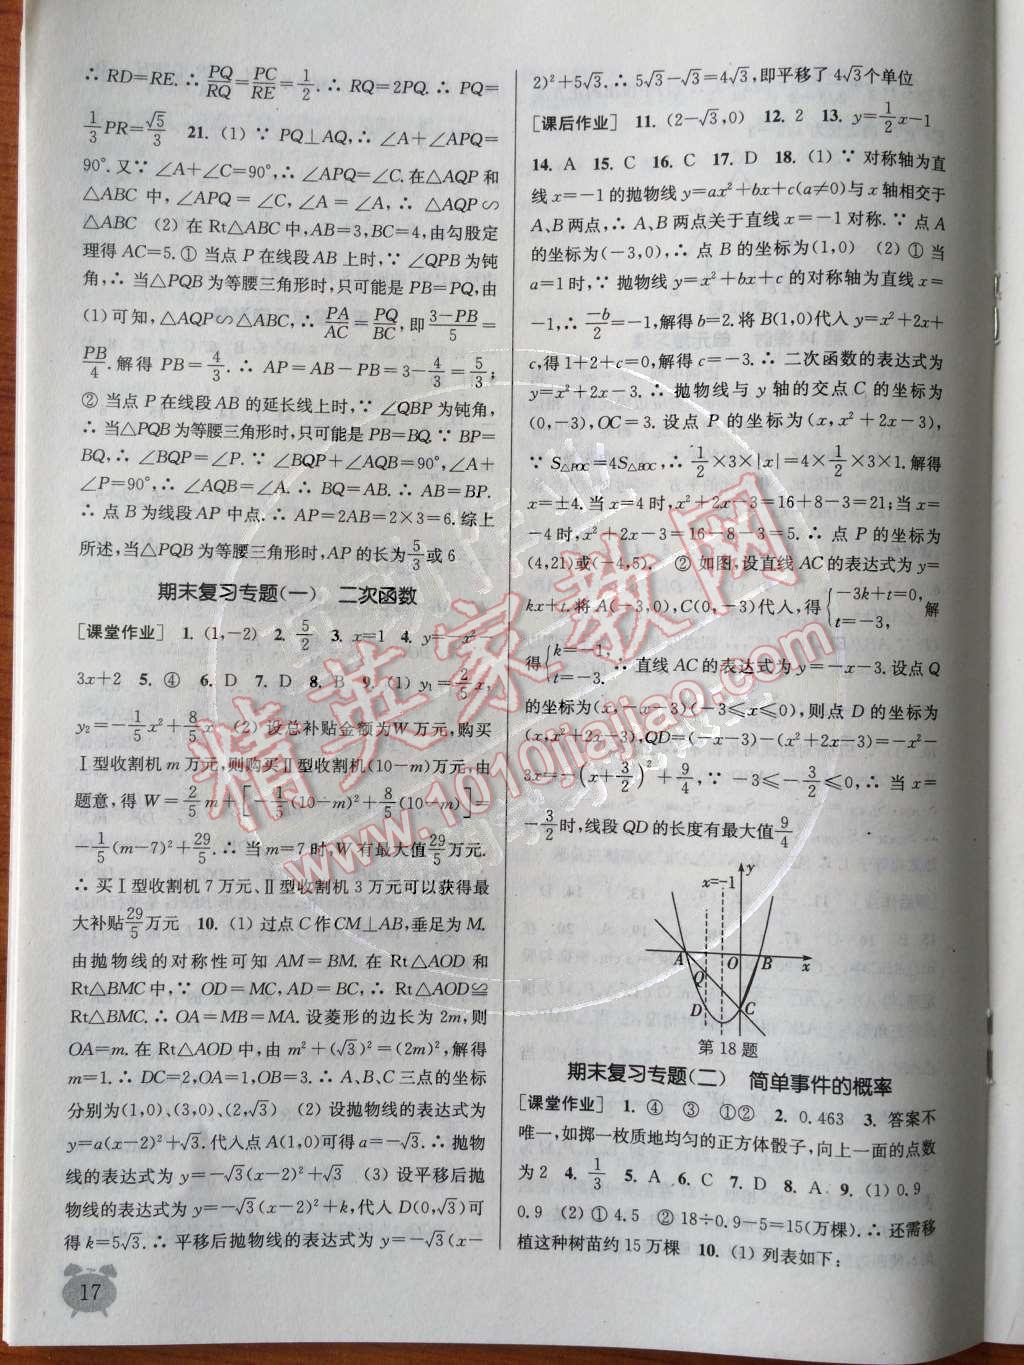 ∴ RD=RE. ∴ PQ/RQ=PC/RE=1/2. ∴ RQ=2PQ. ∴ PQ=
1/3PR=√5/3 21. (1) ∵ PQ⊥AQ, ∴ ∠A+∠APQ=
90°. 又∵ ∠A+∠C=90°, ∴ ∠APQ=∠C. 在△AQP和
△ABC 中, ∠APQ=∠C, ∠A=∠A, ∴ △AQP∽
△ABC (2) 在 Rt△ABC 中, AB=3, BC=4, 由勾股定
理得 AC=5. ① 当点 P 在线段 AB 上时, ∵ ∠QPB 为钝
角, ∴ 当△PQB 为等腰三角形时, 只可能是 PB=PQ, 由
(1) 可知, △AQP∽△ABC, ∴ PA/AC=PQ/BC, 即(3-PB)/5=
PB/4. 解得 PB=4/3. ∴ AP=AB-PB=3-4/3=5/3;
② 当点 P 在线段 AB 的延长线上时, ∵ ∠QBP 为钝角,
∴ 当△PQB 为等腰三角形时, 只可能是 PB=BQ. ∵ BP=
BQ, ∴ ∠BQP=∠P. ∵ ∠BQP+∠AQB=90°, ∠A+
∠P=90°, ∴ ∠AQB=∠A. ∴ BQ=AB. ∴ AB=BP.
∴ 点 B 为线段 AP 中点. ∴ AP=2AB=2×3=6. 综上
所述, 当△PQB 为等腰三角形时, AP 的长为5/3或 6
期末复习专题(一) 二次函数
[课堂作业] 1. (1,-2) 2. 5/2 3. x=1 4. y=-x²-
3x+2 5. ④ 6. D 7. D 8. B 9. (1) y₁=2/5x,
y₂=-1/5x²+8/5x (2) 设总补贴金额为W 万元, 购买
Ⅰ型收割机 m 万元, 则购买Ⅱ型收割机(10-m)万元, 由
题意, 得 W=2/5m+[-1/5(10-m)²+8/5(10-m)]=
-1/5(m-7)²+29/5. ∴ 当 m=7 时, W 有最大值29/5万元.
∴ 买Ⅰ型收割机 7 万元、Ⅱ型收割机 3 万元可以获得最
大补贴29/5万元 10. (1) 过点 C 作 CM⊥AB, 垂足为 M.
由抛物线的对称性可知 AM=BM. 在 Rt△AOD 和
Rt△BMC 中, ∵ OD=MC, AD=BC, ∴ Rt△AOD≌
Rt△BMC. ∴ OA=MB=MA. 设菱形的边长为 2m, 则
OA=m. 在 Rt△AOD 中, 由 m²+(√3)²=(2m)², 解得
m=1. ∴ DC=2, OA=1, OB=3. ∴ A、B、C 三点的坐标
分别为(1,0)、(3,0)、(2,√3) (2) 设抛物线的表达式为
y=a(x-2)²+√3. 代入点 A(1,0)可得 a=-√3. ∴ 抛物
线的表达式为 y=-√3(x-2)²+√3 (3) 设平移后抛
物线的表达式为 y=-√3(x-2)²+k, 代入 D(0,√3)可
得 k=5√3. ∴ 平移后抛物线的表达式为 y=-√3(x-
17
2)²+5√3. ∴ 5√3-√3=4√3, 即平移了 4√3个单位
[课后作业] 11. (2-√3,0) 12. 2 13. y=1/2x-1
14. A 15. C 16. C 17. D 18. (1) ∵ 对称轴为直
线 x=-1 的抛物线 y=ax²+bx+c(a≠0)与 x 轴相交于
A、B 两点, ∴ A、B 两点关于直线 x=-1 对称. ∵ 点 A
的坐标为(-3,0), ∴ 点 B 的坐标为(1,0) (2) ① 当
a=1 时, ∵ 抛物线 y=x²+bx+c 的对称轴为直线 x=
-1, ∴ -b/2=-1, 解得 b=2. 将 B(1,0)代入 y=x²+2x+
c, 得 1+2+c=0, 解得 c=-3. ∴ 二次函数的表达式为
y=x²+2x-3. ∴ 抛物线与 y 轴的交点 C 的坐标为
(0,-3), OC=3. 设点 P 的坐标为(x, x²+2x-3).
∵ S△POC=4S△BOC, ∴ 1/2×3×|x|=4×1/2×3×1. 解得
x=±4. 当 x=4 时, x²+2x-3=16+8-3=21; 当 x=
-4 时, x²+2x-3=16-8-3=5. ∴ 点 P 的坐标为
(4,21)或(-4,5). ② 如图, 设直线 AC 的表达式为 y=
kx+t. 将 A(-3,0), C(0,-3)代入, 得{-3k+t=0, t=-3, 解
得{k=-1, t=-3. ∴ 直线 AC 的表达式为 y=-x-3. 设点 Q
的坐标为(x,-x-3)(-3≤x≤0), 则点 D 的坐标为
(x, x²+2x-3), QD=(-x-3)-(x²+2x-3)=-x²-
3x=-(x+3/2)²+9/4, ∵ -3≤-3/2≤0, ∴ 当 x=
-3/2时, 线段 QD 的长度有最大值9/4
x=-1 y
A Q O B x
D C
第 18 题
期末复习专题(二) 简单事件的概率
[课堂作业] 1. ④ ③ ①② 2. 0.463 3. 答案不
唯一, 如掷一枚质地均匀的正方体骰子, 向上一面的点数
为 2 4. 1/3 5. A 6. C 7. D 8. A 9. (1) 0.9
0.9 (2) ① 4.5 ② 18÷0.9-5=15(万棵). ∴ 还需移
植这种树苗约 15 万棵 10. (1) 列表如下:
精英家教网
www.1010jiajiao.com